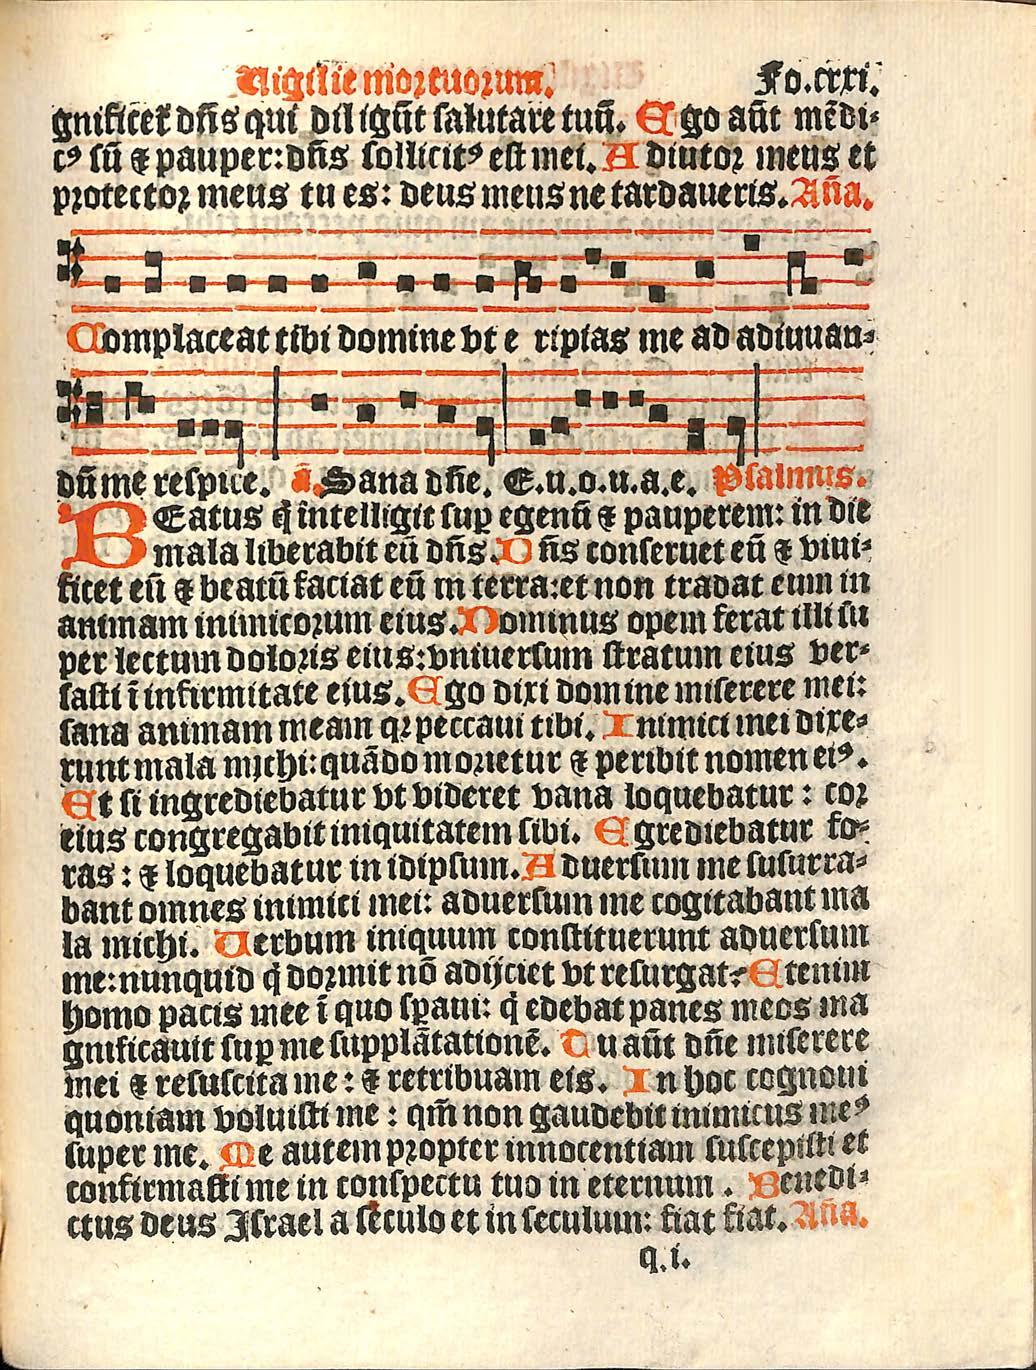 Uigilie mortuorum. Fo.cxxi.
gnificet dn̄s qui diligūt salutare tuū. Ego aūt mēdi-
cꝰ sū ⁊ pauper: dn̄s sollicitꝰ est mei. Adiutor meus et
protector meus tu es: deus meus ne tardaueris. Añа.
Complaceat tibi domine vt e ripias me ad adiuuan-
dū me respice. ā. Sana dn̄e. E.u.o.u.a.e. Psalmus.
BEatus q̄ intelligit suꝑ egenū ⁊ pauperem: in die
mala liberabit eū dn̄s. Dn̄s conseruet eū ⁊ viui-
ficet eū ⁊ beatū faciat eū in terra: et non tradat eum in
animam inimicorum eius. Dominus opem ferat illi su
per lectum doloris eius: vniuersum stratum eius ver-
sasti ī infirmitate eius. Ego dixi domine miserere mei:
sana animam meam qꝛ peccaui tibi. Inimici mei dixe-
runt mala michi: quādo morietur ⁊ peribit nomen eiꝰ.
Et si ingrediebatur vt videret vana loquebatur: cor
eius congregabit iniquitatem sibi. Egrediebatur fo-
ras: ⁊ loquebatur in idipsum. Aduersum me susurra-
bant omnes inimici mei: aduersum me cogitabant ma
la michi. Uerbum iniquum constituerunt aduersum
me: nunquid q̄ dormit nō adijciet vt resurgat. Etenim
homo pacis mee ī quo sꝑaui: q̄ edebat panes meos ma
gnificauit suꝑ me supplātationē. Tu aūt dn̄e miserere
mei ⁊ resuscita me: ⁊ retribuam eis. In hoc cognoui
quoniam voluisti me: qm̄ non gaudebit inimicus meꝰ
super me. Me autem propter innocentiam suscepisti et
confirmasti me in conspectu tuo in eternum. Benedi-
ctus deus Israel a seculo et in seculum: fiat fiat. Aña.
q.i.